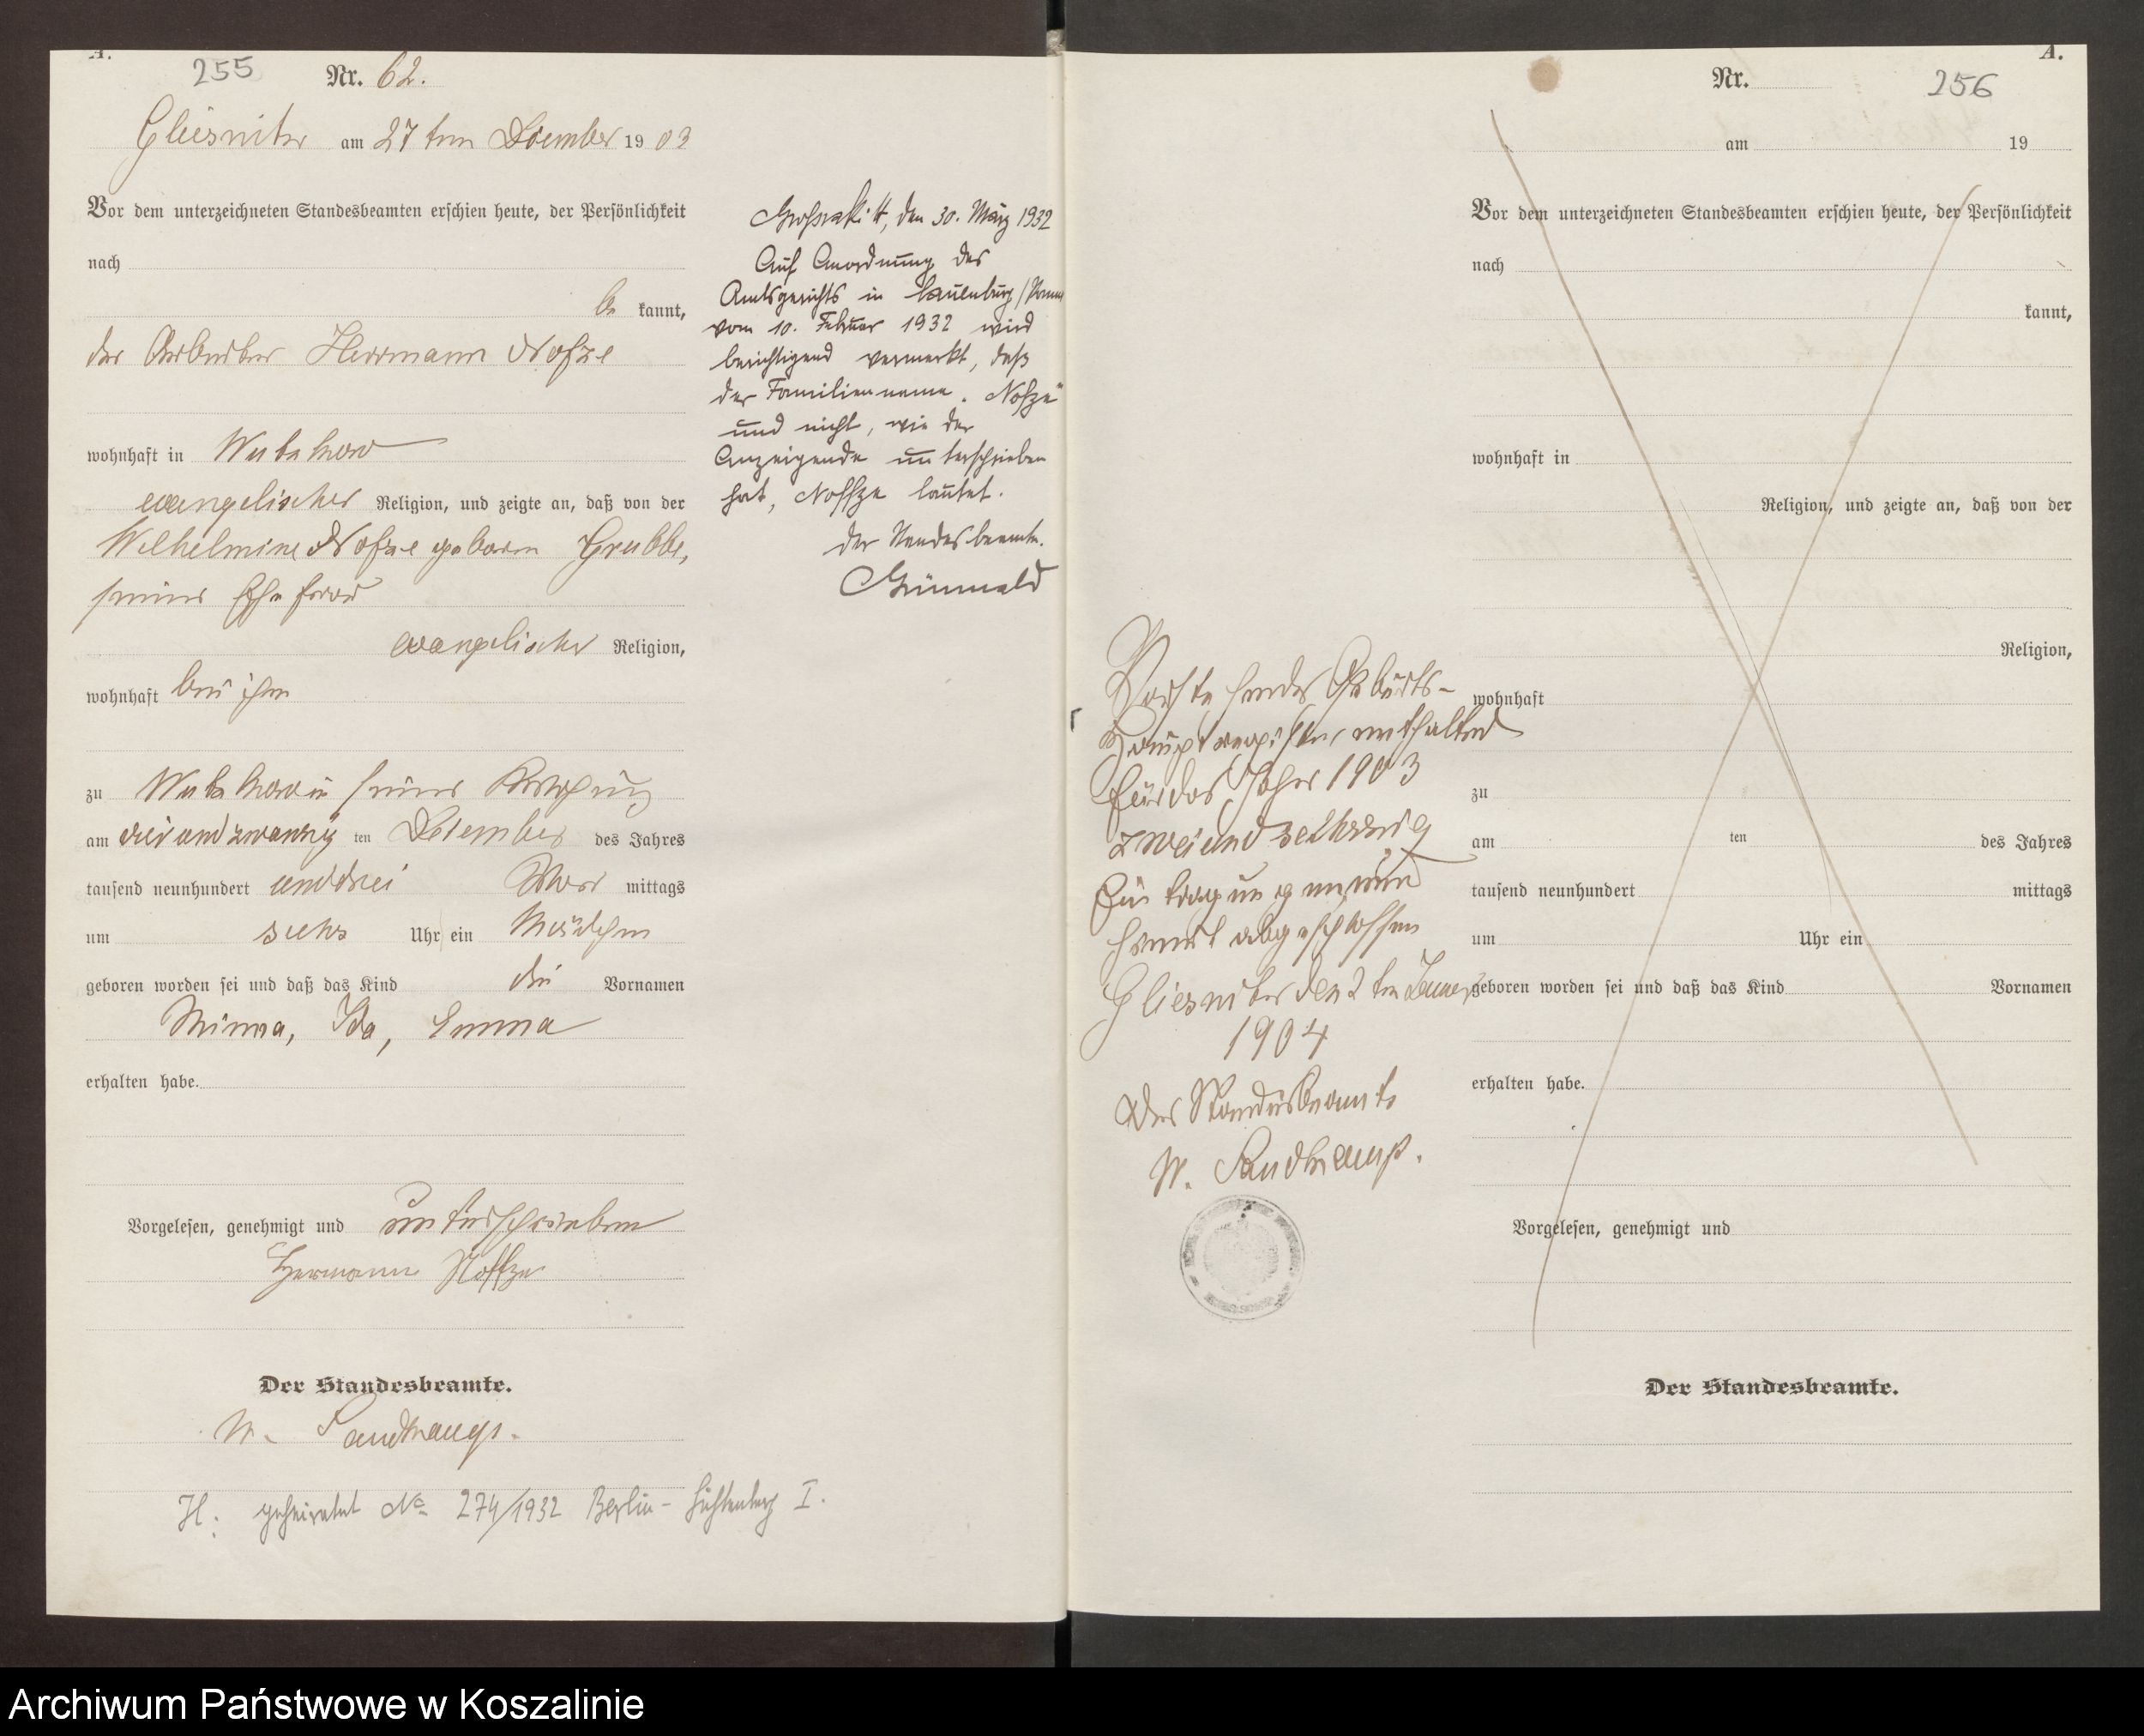 A.
255
Nr. 62.
Gliesnitz am 27 ten Dezember 19 03
Vor dem unterzeichneten Standesbeamten erschien heute, der Persönlichkeit
nach
be kannt,
der Arbeiter Herrmann Nofze
wohnhaft in Wutzkow
evangelischer Religion, und zeigte an, daß von der
Wilhelmine Nofze geboren Grubbe,
seiner Ehefrau
evangelischer Religion,
wohnhaft bei ihm
zu Wutzkow in seiner Wohnung
am dreiundzwanzig ten Dezember des Jahres
tausend neunhundert und drei Vor mittags
um sechs Uhr ein Mädchen
geboren worden sei und daß das Kind die Vornamen
Minna, Ida, Emma
erhalten habe.
Vorgelesen, genehmigt und unterschrieben
Hermann Noffze
Der Standesbeamte.
W. Sandkamp.
H: geheiratet No 274/1932 Berlin-Lichtenberg I.
Großrakitt, den 30. März 1932
Auf Anordnung des
Amtsgerichts in Lauenburg/Pomm
vom 10. Februar 1932 wird
berichtigend vermerkt, daß
der Familienname „Nofze"
und nicht, wie der
Anzeigende unterschrieben
hat, Noffze lautet.
Der Standesbeamte.
Grünwald
Vorstehendes Geburts-
Hauptregister, enthaltend
für das Jahr 1903
zweiundsechszig
Eintragungen, wird
hiermit abgeschlossen
Gliesnitz den 2 ten Januar
1904
Der Standesbeamte
W. Sandkamp.
A.
Nr.
256
am 19
Vor dem unterzeichneten Standesbeamten erschien heute, der Persönlichkeit
nach
kannt,
wohnhaft in
Religion, und zeigte an, daß von der
Religion,
wohnhaft
zu
am ten des Jahres
tausend neunhundert mittags
um Uhr ein
geboren worden sei und daß das Kind Vornamen
erhalten habe.
Vorgelesen, genehmigt und
Der Standesbeamte.
Archiwum Państwowe w Koszalinie